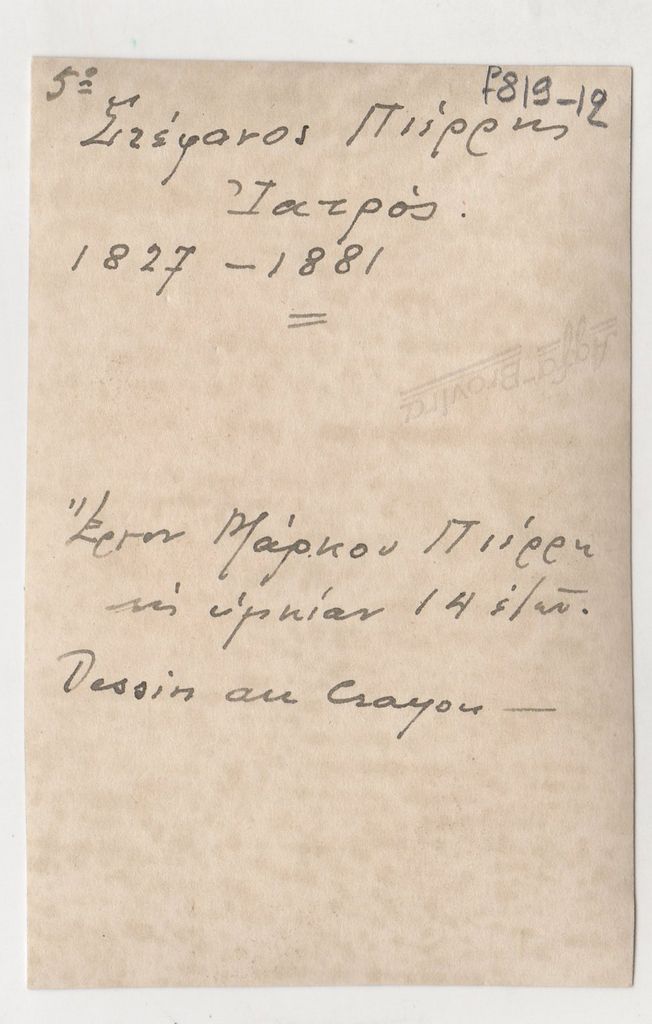 5º
F819-12
Στέφανος Πιέρρης
Ἰατρός.
1827 – 1881
Agfa-Brovira
Ἔργον Μάρκου Πιέρρη
εἰς ἡλικίαν 14 ἐτῶν.
Dessin au Crayon —